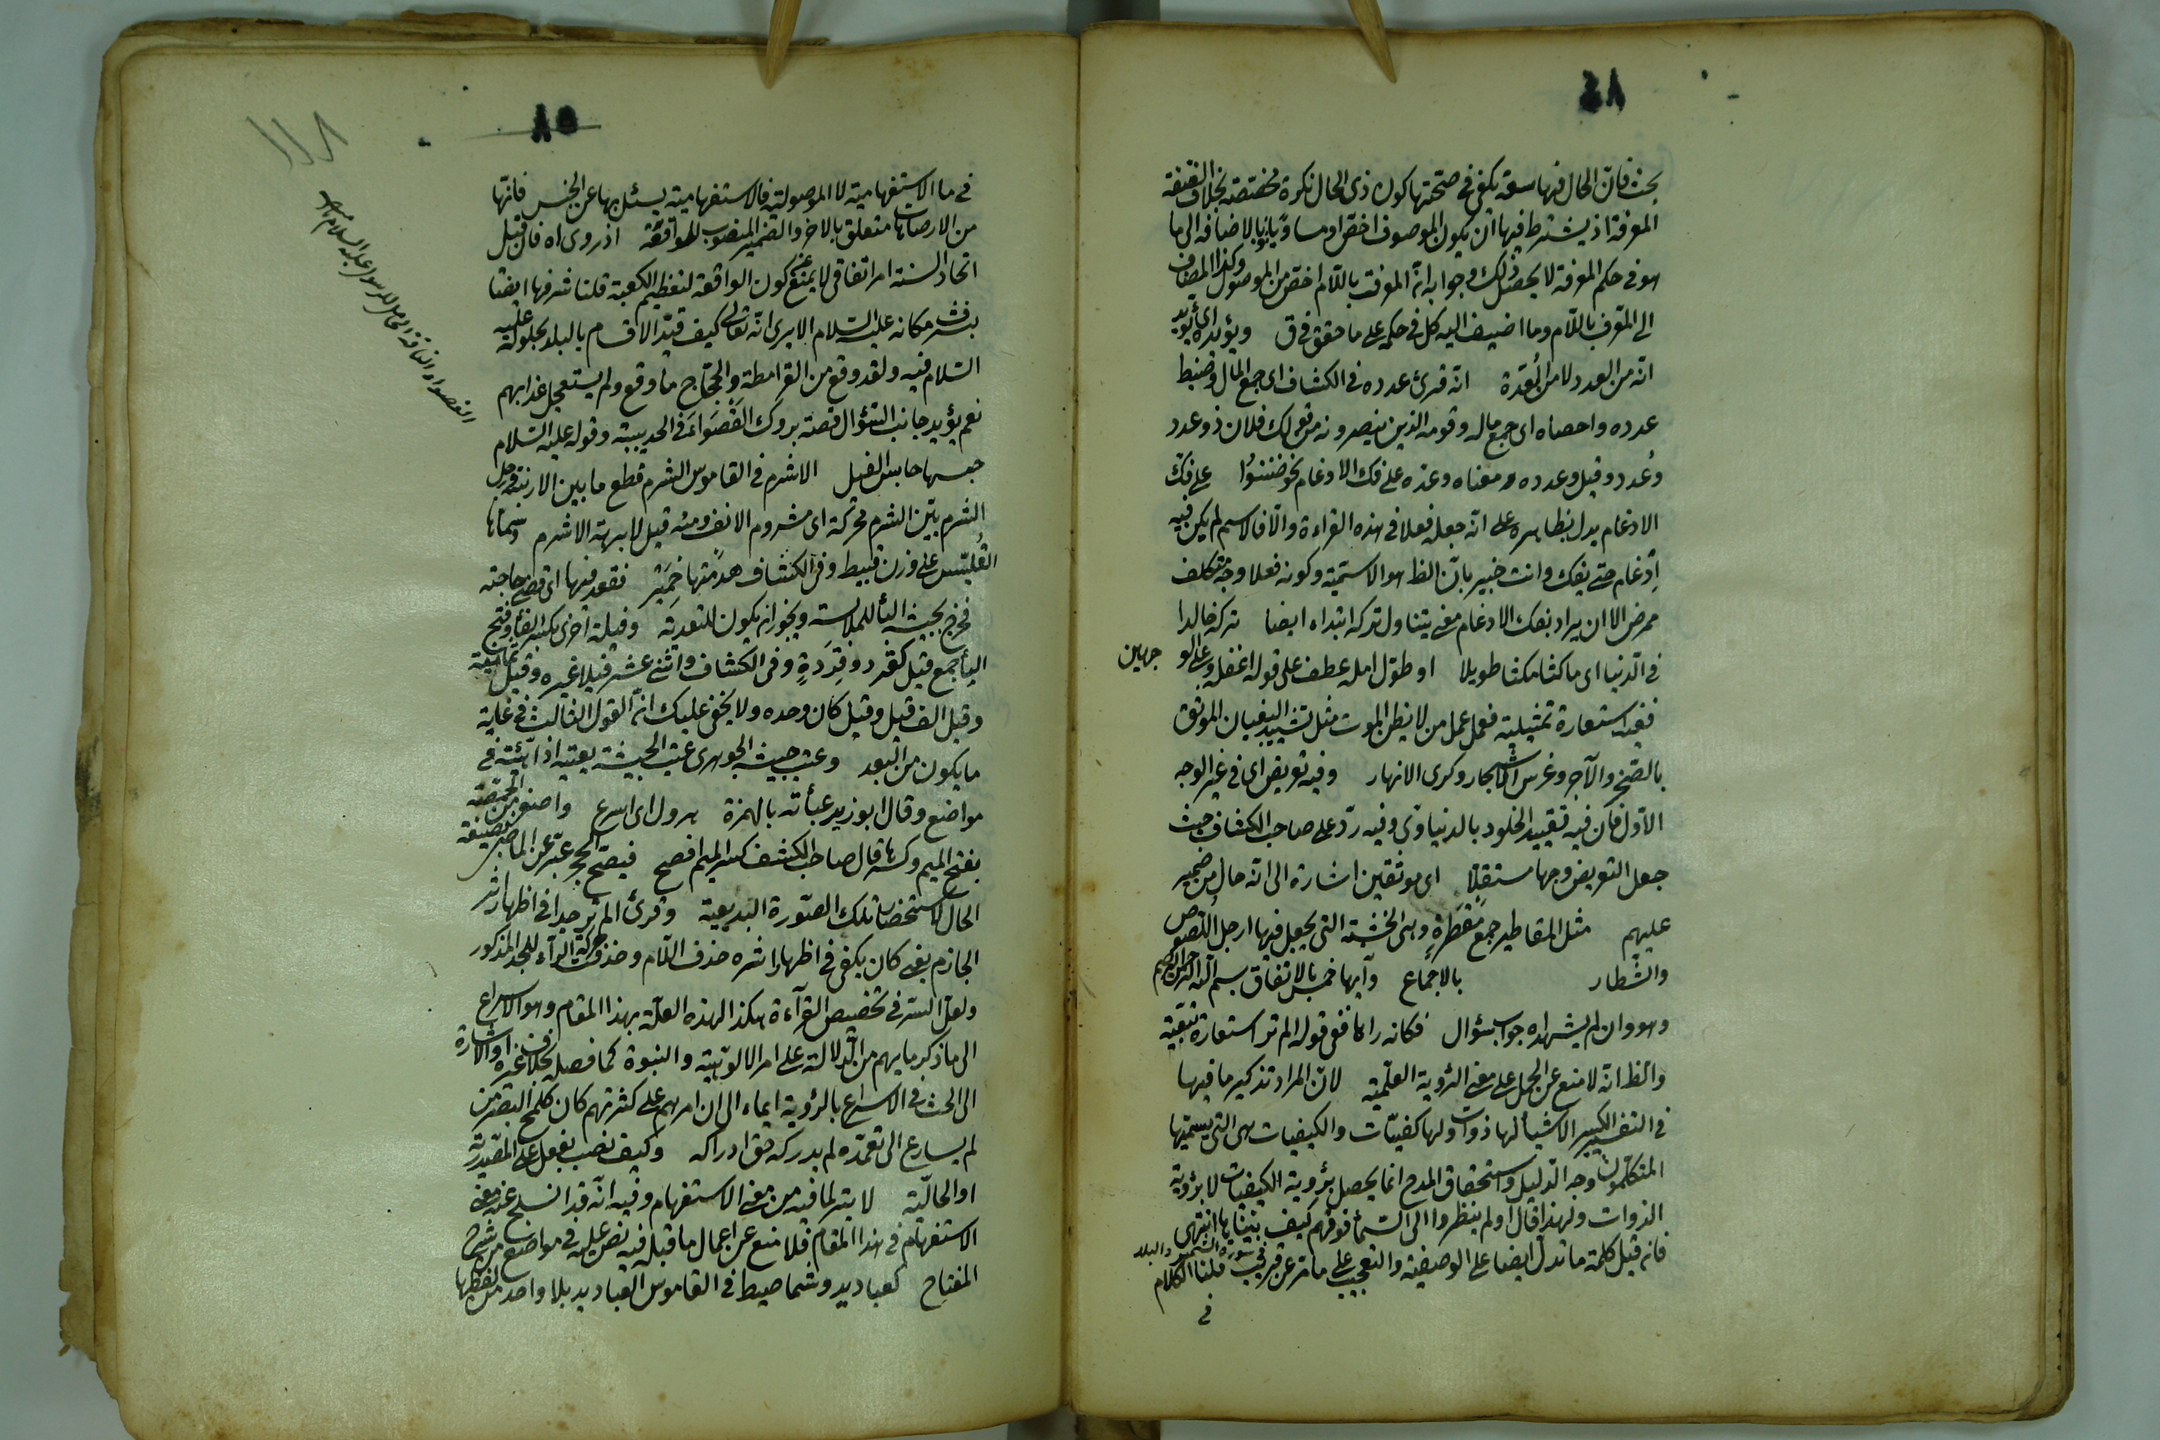 ٨٤
بحث فانّ الحال فيها سعة يكفي في صحتها كون ذي الحال نكرة مختصة بخلاف الصفة
المعرفة اذ يشترط فيها ان يكون الموصوف اخصّ او مساويا بالاضافة الى ما
هو في حكم المعرفة لا يحصل ذلك وجوابه انّ المعرف باللّام اخص من الموصول وكذا المضاف
الى المعرّف باللّام وما اضيف اليه كل في حكمه على ما حقق في ق ويؤيده اى يؤيد
انّه من العدد لا من العُدّة انّه قرئ عدده في الكشاف اى جمع المال وضبط
عدده واحصاه اى جمع ماله وقومه الذين ينصرونه من قولك فلان ذو عدد
وعُدد وقيل وعدده معناه وعدّه على فك الادغام نحو ضننوا على فك
الادغام يدل بظاهره على انّه جعله فعلا في هذه القراءة والّا فالاسم لم يكن فيه
ادغام حتى يفك وانت خبير بانّ الظ هو الاسميّة وكونه فعلا وجه متكلف
ممرض الا ان يراد بفك الادغام معنى يتناول تركه ابتداء ايضا تركه خالدا
في الدنيا اى ماكثا مكثا طويلا او طوّل امله عطف على قوله اغفله وعلى الو جهين
ففيه استعارة تمثيلية فعمل عمل من لا يظن الموت مثل تشييد البنيان الموثق
بالصخر والآجر وغرس الاشجار وكرى الانهار وفيه تعريض اى في غير الوجه
الاوّل فان فيه تقييد الخلود بالدنياوى وفيه ردّ على صاحب الكشاف حيث
جعل التعريض وجها مستقلّا اى موثقين اشارة الى انّه حال من ضمير
عليهم مثل المقاطير جمع مقطرة وهى الخشبة التى يجعل فيها ارجل اللصوص
والشّطار بالاجماع وآيها خمس بالاتفاق بسم الله الرحمن الرحيم
وهو وان لم يشهده جواب سؤال فكانه رآها ففي قوله الم تر استعارة تبعيّة
والظ انّه لا منع عن الحمل على معنى الرّؤية العلميّة لانّ المراد تذكير ما فيها
في التفسير الكبير الاشياء لها ذوات ولها كيفيّات والكيفيات هى التى يسميها
المتكلّمون وجه الدّليل واستحقاق المدح انما يحصل برؤية الكيفيات لا برؤية
الذوات ولهذا قال اولم ينظروا الى السّماء فوقهم كيف بنيناها انتهى
فانه قيل كلمة ما تدلّ ايضا على الوصفيّة والتعجيب على ما مر عن قريب في سورة الشمس والبلد قلنا الكلام
في
٨٥
١١٨
في ما الاستفهامية لا الموصولة فالاستفهامية يسئل بها عن الجنس فانّها
من الارهاصات متعلق بالاخر والضمير المنصوب للواقعة اذ روى اه فان قيل
اتحاد السنة امر اتفاقى لا يمنع عن كون الواقعة لتعظيم الكعبة قلنا شرفها ايضا
بشرف مكانه عليه السّلام الا يرى انّه تعالى كيف قيّد الاقسام بالبلد بحلوله عليه
السّلام فيه ولقد وقع من القرامطة والحجّاج ما وقع ولم يستعجل عذابهم
نعم يؤيد جانب السّؤال قصة بروك القَصْوَاء في الحديبية وقوله عليه السّلام
حبسها حابس الفيل الاشرم في القاموس الشرم قطع ما بين الارنبة ورجل
اشرم بيّن الشرم محركة اى مشروم الانف ومنه قيل لابرهة الاشرم وسمّاها
القُلَّيس على وزن قبيط وفي الكشاف فقعد فيها اى قضى حاجته
فخرج بجيشه الباء للملابسة ويجوز ان يكون للتعدية وفيلة اخرى بكسر الفاء وفتح
الياء جمع فيل كقرد وقردة وفي الكشاف واثنى عشر فيلا غيره وقيل ثمانية
وقيل الف فيل وقيل كان وحده ولا يخفى عليك انّ القول الثالث في غاية
ما يكون من البعد وعبّى جيشه الجوهرى عبيت الجيش تعبية اذا هيّئته في
مواضع وقال ابو زيد عبأته بالهمزة هرول اى اسرع واصغر من الحمّصة
بفتح الميم وكسرها قال صاحب الكشف كسر الميم افصح فيصحّح عبّر عن الماضى بصيغة
الحال لاستحضار تلك الصّورة البديعة وقرئ الم تر جدا في اظهار اثر
الجازم يعنى كان يكفى في اظهار اثره حذف اللّام وحذفت حركة الراء للجد المذكور
ولعلّ السّر في تخصيص القرآءة هكذا لهذه العلّة بهذا المقام وهو الاسراع
الى ما ذكر ما يهم من الدّلالة على امر الالوهيّة والنبوة كما فصله بخلاف غيره او الاشارة
الى الحث في الاسراع بالرؤية ايماء الى ان امرهم على كثرتهم كان كلمح البصر من
لم يسارع الى تعمّده لم يدركه حق ادراكه وكيف نصب بفعل على المصدرية
او الحاليّة لا بتر لما فيه من معنى الاستفهام وفيه انّه قد انسلخ عنه معنى
الاستفهام في هذا المقام فلا منع عن اعمال ما قبله فيه نص عليه في مواضع من شرح
المفتاح كعباديد وشماطيط في القاموس العباديد بلا واحد من لفظها
القصواء الناقة لرسول الله عليه السلام